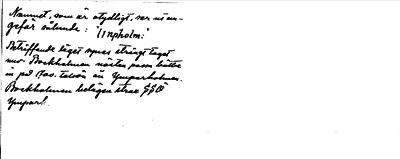 Namnet, som är otydligt, ser ut un-
gefär sålunda: "Ympholm:"
Beträffande läget synes strängt taget
mv Bockholmen nästan passa bättre
in på 1700-talets än Ymparholmen.
Bockholmen belägen strax SSO
Ympar/.